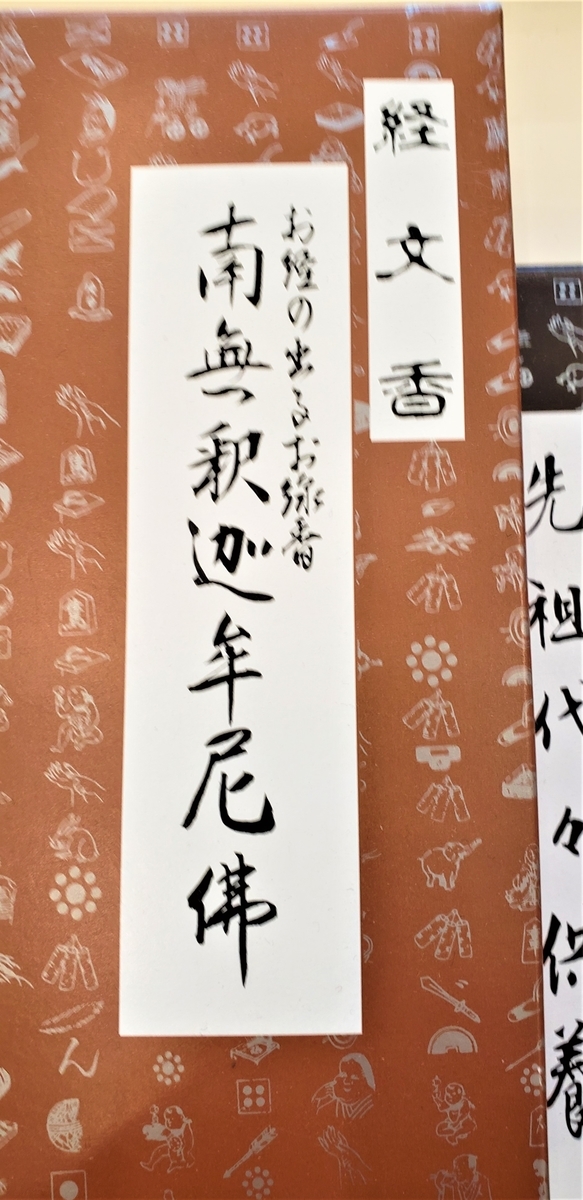 経文香
お経の出るお線香
南無釈迦牟尼佛
先祖代々供養